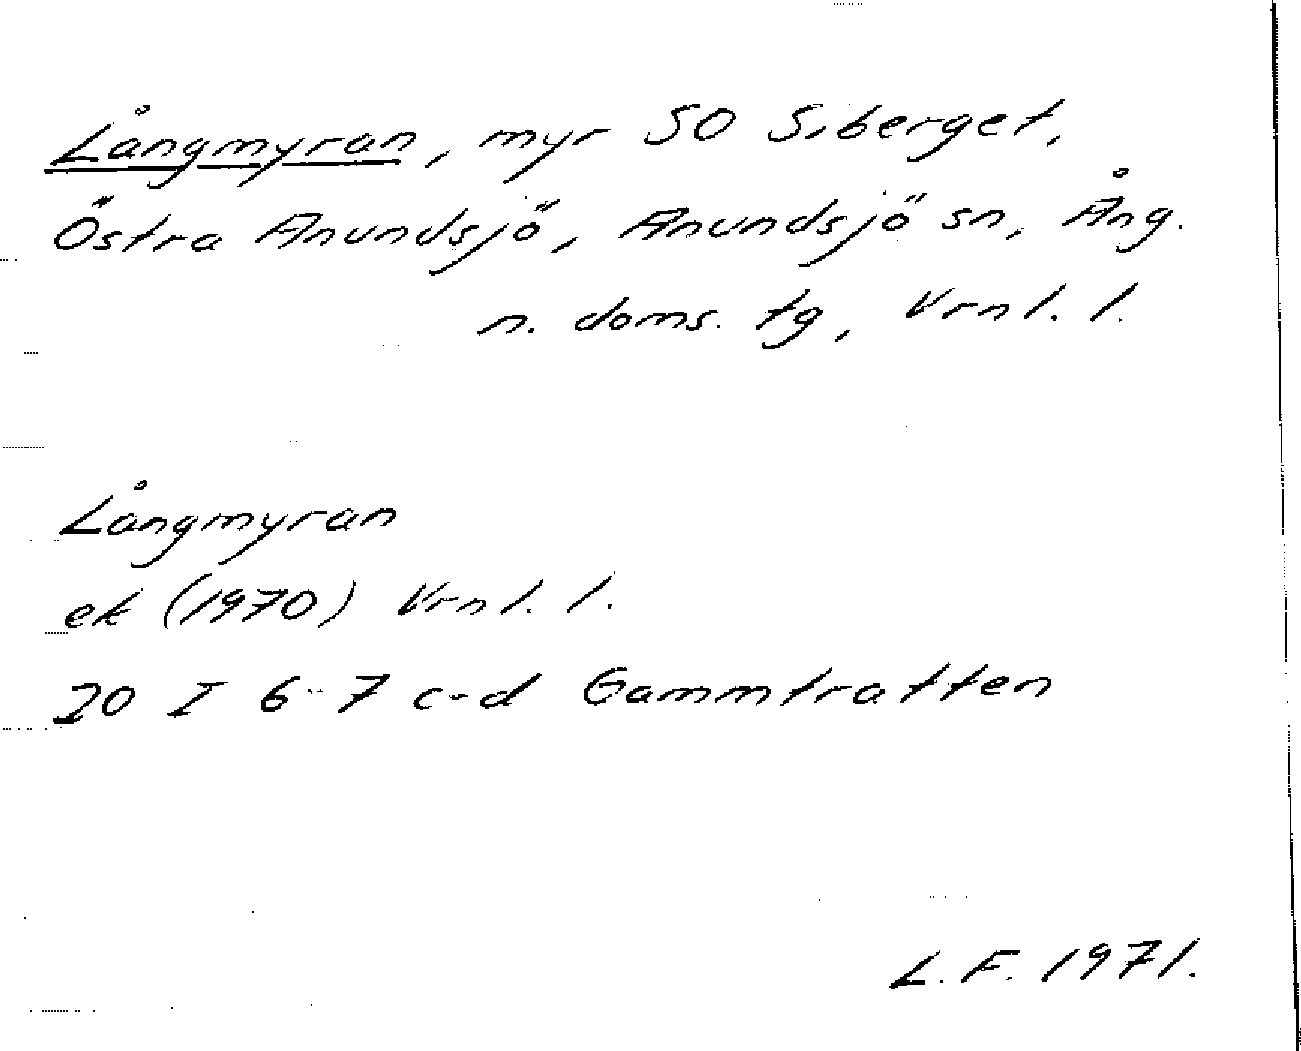 Långmyran, myr SO Siberget,
Östra Anundsjö, Anundsjö sn, Ång.
n. doms. tg, Vrnl. l.
Långmyran
ek (1970) Vrnl. l.
20 I 6-7 c-d Gammtratten
L. F. 1971.